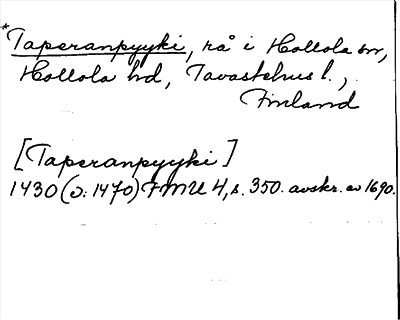 *Taperanpyyki, rå i Hollola sn,
Hollola hd, Tavastehus l.,
Finland
[Taperanpyyki]
1430 (o: 1470) FMU 4, s. 350. avskr. av 1690.